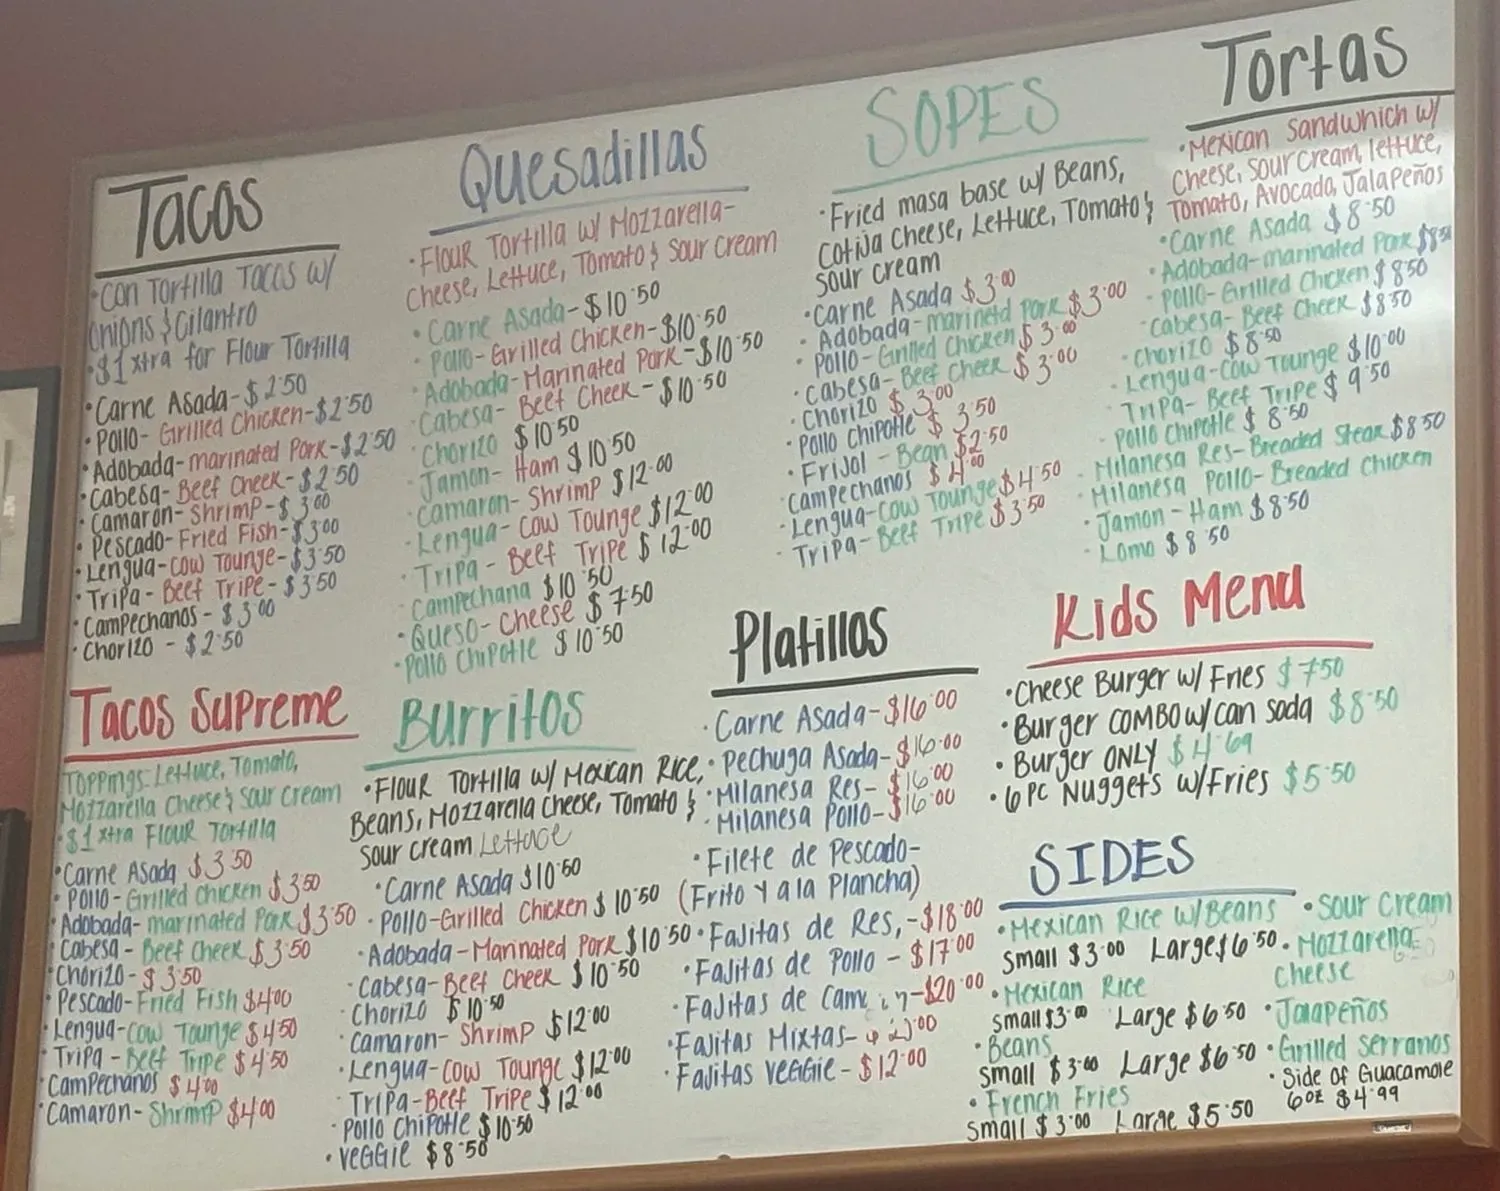 Tacos
• Con Tortilla Tacos w/
Onions & Cilantro
• $1 xtra for Flour Tortilla
• Carne Asada - $2.50
• Pollo - Grilled Chicken - $2.50
• Adobada - marinated Pork - $2.50
• Cabesa - Beef Cheek - $2.50
• Camaron - Shrimp - $3.00
• Pescado - Fried Fish - $3.00
• Lengua - Cow Tounge - $3.50
• Tripa - Beef Tripe - $3.50
• Campechanos - $3.00
• Chorizo - $2.50
Quesadillas
• Flour Tortilla w/ Mozzarella -
Cheese, Lettuce, Tomato & Sour Cream
• Carne Asada - $10.50
• Pollo - Grilled Chicken - $10.50
Adobada - Marinated Pork - $10.50
Cabesa - Beef Cheek - $10.50
Chorizo $10.50
Jamon - Ham $10.50
Camaron - Shrimp $12.00
• Lengua - Cow Tounge $12.00
• Tripa - Beef Tripe $12.00
Campechana $10.50
• Queso - Cheese $7.50
• Pollo Chipotle $10.50
SOPES
• Fried masa base w/ Beans,
Cotija Cheese, Lettuce, Tomato &
Sour cream
• Carne Asada $3.00
• Adobada - marinetd Pork $3.00
• Pollo - Grilled Chicken $3.00
• Cabesa - Beef Cheek $3.00
• Chorizo $3.00
• Pollo Chipotle $3.50
• Frijol - Bean $2.50
• Campechanos $4.00
• Lengua - Cow Tounge $4.50
• Tripa - Beef Tripe $3.50
Tortas
• Mexican Sandwhich w/
Cheese, Sour Cream, lettuce,
Tomato, Avocado, Jalapeños
• Carne Asada $8.50
• Adobada - marinated Pork
• Pollo - Grilled Chicken $8.50
• Cabesa - Beef Cheek $8.50
• Chorizo $8.50
• Lengua - Cow Tounge $10.00
• Tripa - Beef Tripe $9.50
• Pollo Chipotle $8.50
• Milanesa Res - Breaded Steak $8.50
• Milanesa Pollo - Breaded Chicken
• Jamon - Ham $8.50
• Lomo $8.50
Tacos Supreme
Toppings: Lettuce, Tomato,
Mozzarella Cheese & Sour Cream
• $1 xtra Flour Tortilla
• Carne Asada $3.50
• Pollo - Grilled Chicken $3.50
• Adobada - marinated Pork $3.50
• Cabesa - Beef Cheek $3.50
• Chorizo - $3.50
• Pescado - Fried Fish $4.00
• Lengua - Cow Tounge $4.50
• Tripa - Beef Tripe $4.50
• Campechanos $4.00
• Camaron - Shrimp $4.00
Burritos
• Flour Tortilla w/ Mexican Rice,
Beans, Mozzarella Cheese, Tomato &
Sour cream Lettuce
• Carne Asada $10.50
• Pollo - Grilled Chicken $10.50
• Adobada - Marinated Pork $10.50
• Cabesa - Beef Cheek $10.50
• Chorizo $10.50
• Camaron - Shrimp $12.00
• Lengua - Cow Tounge $12.00
• Tripa - Beef Tripe $12.00
• Pollo Chipotle $10.50
• Veggie $8.50
Platillos
• Carne Asada - $16.00
• Pechuga Asada - $16.00
• Milanesa Res - $16.00
• Milanesa Pollo - $16.00
• Filete de Pescado -
(Frito Y a la Plancha)
• Fajitas de Res, - $18.00
• Fajitas de Pollo - $17.00
• Fajitas de - $20.00
• Fajitas Mixtas -
• Fajitas Veggie - $12.00
Kids Menu
• Cheese Burger w/ Fries $7.50
• Burger COMBO w/ can soda $8.50
• Burger ONLY $4.69
• 6 PC Nuggets w/ Fries $5.50
SIDES
• Mexican Rice w/ Beans
Small $3.00 Large $6.50
• Mexican Rice
Small $3.00 Large $6.50
• Beans
Small $3.00 Large $6.50
• French Fries
Small $3.00 Large $5.50
• Sour Cream
• Mozzarella
Cheese
• Jalapeños
• Grilled Serranos
• Side of Guacamole
6oz $4.99